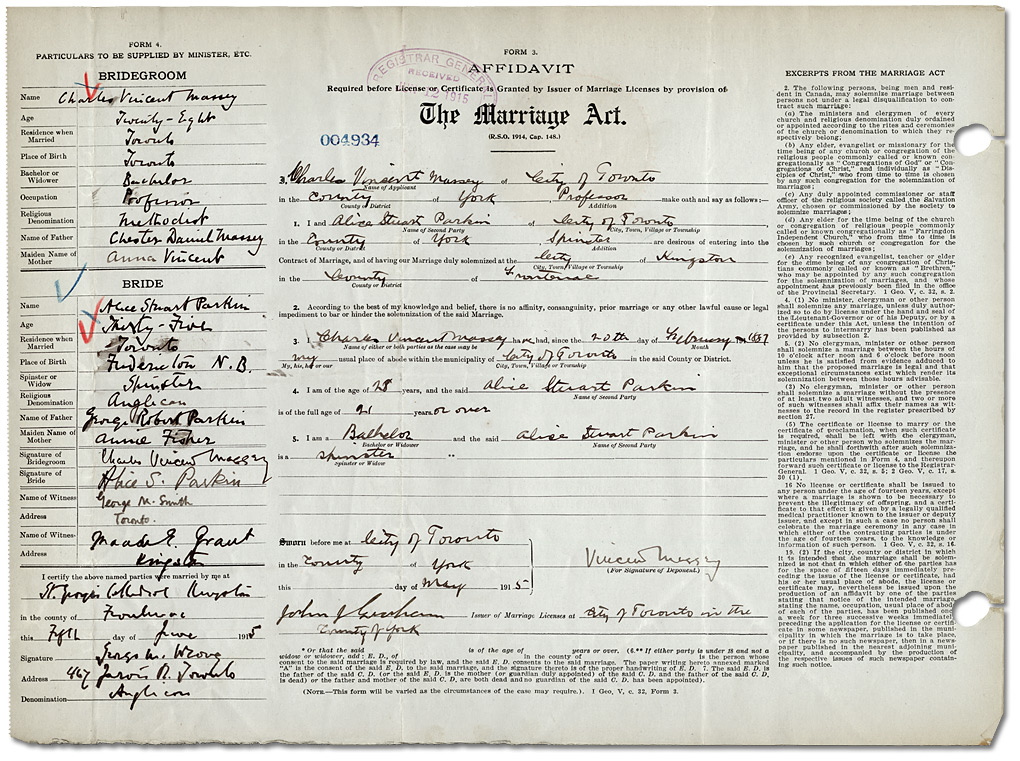 FORM 4.
PARTICULARS TO BE SUPPLIED BY MINISTER, ETC.
BRIDEGROOM
Name Charles Vincent Massey
Age Twenty-Eight
Residence when Married Toronto
Place of Birth Toronto
Bachelor or Widower Bachelor
Occupation Professor
Religious Denomination Methodist
Name of Father Chester Daniel Massey
Maiden Name of Mother Anna Vincent
BRIDE
Name Alice Stuart Parkin
Age Thirty-Five
Residence when Married Toronto
Place of Birth Fredericton N.B.
Spinster or Widow Spinster
Religious Denomination Anglican
Name of Father George Robert Parkin
Maiden Name of Mother Annie Fisher
Signature of Bridegroom Charles Vincent Massey
Signature of Bride Alice S. Parkin
Name of Witness George M. Smith
Address Toronto.
Name of Witness Maude E. Grant
Address Kingston
I certify the above named parties were married by me at
St. Georges Cathedral Kingston
in the county of Frontenac
this Fifth day of June 1915
Signature George M.
Address 467 Jarvis St. Toronto
Denomination Anglican
FORM 3.
AFFIDAVIT
REGISTRAR GENERAL
RECEIVED
12 1915
Required before License or Certificate is Granted by Issuer of Marriage Licenses by provision of
The Marriage Act.
(R.S.O. 1914, Cap. 148.)
004934
3. Charles Vincent Massey of City of Toronto
Name of Applicant
in the County of York Professor make oath and say as follows:—
County or District Addition
1. I and Alice Stuart Parkin of City of Toronto
Name of Second Party City, Town, Village or Township
in the County of York Spinster are desirous of entering into the
County or District Addition
Contract of Marriage, and of having our Marriage duly solemnized at the City of Kingston
City, Town, Village or Township
in the County of Frontenac
County or District
2. According to the best of my knowledge and belief, there is no affinity, consanguinity, prior marriage or any other lawful cause or legal
impediment to bar or hinder the solemnization of the said Marriage.
3. Charles Vincent Massey have had, since the 20th day of February 1887
Name of either or both parties as the case may be
my usual place of abode within the municipality of City of Toronto in the said County or District.
My, his, her or our City, Town, Village or Township
4. I am of the age of 28 years, and the said Alice Stuart Parkin
Name of Second Party
is of the full age of 21 years, or over
5. I am a Bachelor and the said Alice Stuart Parkin
Bachelor or Widower Name of Second Party
is a spinster
Spinster or Widow
Sworn before me at City of Toronto
in the County of York
this day of May 1915
Vincent Massey
(For Signature of Deponent.)
John J Issuer of Marriage Licenses at City of Toronto in the
County of York
* Or that the said is of the age of years or over. (6.** If either party is under 18 and not a
widow or widower, add: E. D., of in the county of is the person whose
consent to the said marriage is required by law, and the said E. D. consents to the said marriage. The paper writing hereto annexed marked
"A" is the consent of the said E. D. to the said marriage, and the signature thereto is of the proper handwriting of E. D. 7. The said E. D. is
the father of the said C. D. (or the said E. D. is the mother (or guardian duly appointed) of the said C. D. and the father of the said C. D.
is dead) or the father and mother of the said C. D. are both dead and no guardian of the said C. D. has been appointed).
(NOTE.—This form will be varied as the circumstances of the case may require.). 1 Geo, V, c. 32, Form 3.
EXCERPTS FROM THE MARRIAGE ACT
2. The following persons, being men and resi-
dent in Canada, may solemnize marriage between
persons not under a legal disqualification to con-
tract such marriage:
(a) The ministers and clergymen of every
church and religious denomination duly ordained
or appointed according to the rites and ceremonies
of the church or denomination to which they re-
spectively belong;
(b) Any elder, evangelist or missionary for the
time being of any church or congregation of the
religious people commonly called or known con-
gregationally as "Congregations of God" or "Con-
gregations of Christ," and individually as "Dis-
ciples of Christ," who from time to time is chosen
by any such congregation for the solemnization of
marriage;
(c) Any duly appointed commissioner or staff
officer of the religious society called the Salvation
Army, chosen or commissioned by the society to
solemnize marriages;
(d) Any elder for the time being of the church
or congregation of religious people commonly
called or known congregationally as "Farringdon
Independent Church," who from time to time is
chosen by such church or congregation for the
solemnization of marriages;
(e) Any recognized evangelist, teacher or elder
for the time being of any congregation of Chris-
tians commonly called or known as "Brethren," who
may be appointed by any such congregation for
the solemnization of marriages, and whose
appointment has previously been filed in the office
of the Provincial Secretary. 1 Geo. V, c. 32, s. 2.
4. (1) No minister, clergyman or other person
shall solemnize any marriage, unless duly author-
ized so to do by license under the hand and seal of
the Lieutenant-Governor or of his Deputy, or by a
certificate under this Act, unless the intention of
the persons to intermarry has been published as
provided by subsection 2.
5. (2) No clergyman, minister or other person
shall solemnize a marriage between the hours of
10 o'clock after noon and 6 o'clock before noon
unless he is satisfied from evidence adduced to
him that the proposed marriage is legal and that
exceptional circumstances exist which render its
solemnization between those hours advisable.
(2) No clergyman, minister or other person
shall solemnize a marriage without the presence
of at least two adult witnesses, and two or more
of such witnesses shall affix their names as wit-
nesses to the record in the register prescribed by
section 27.
(5) The certificate or license to marry or the
certificate of proclamation, when such certificate
is required, shall be left with the clergyman,
minister or other person who solemnizes the mar-
riage, and he shall forthwith after such solemniz-
ation endorse upon the certificate or license the
particulars mentioned in Form 4, and thereupon
forward such certificate or license to the Registrar-
General. 1 Geo. V, c. 32, s. 5; 2 Geo. V, c. 17, s.
30 (1).
16 No license or certificate shall be issued to
any person under the age of fourteen years, except
where a marriage is shown to be necessary to
prevent the illegitimacy of offspring, and a certi-
ficate to that effect is given by a legally qualified
medical practitioner known to the issuer or deputy
issuer, and except in such a case no person shall
celebrate the marriage ceremony in any case in
which either of the contracting parties is under
the age of fourteen years, to the knowledge or
information of such person. 1 Geo. V, c. 32, s. 16.
19. (2) If the city, county or district in which
it is intended that the marriage shall be solem-
nized is not that in which either of the parties has
for the space of fifteen days immediately pre-
ceding the issue of the license or certificate, had
his or her usual place of abode, the license or
certificate may, nevertheless be issued upon the
production of an affidavit by one of the parties
stating that notice of the intended marriage,
stating the name, occupation, usual place of abode
of each of the parties, has been published once
a week for three successive weeks immediately
preceding the application for the license or certifi-
cate in some newspaper, published in the mu-
nicipality in which the marriage is to take place,
or if there is no such newspaper, then in a news-
paper published in the nearest adjoining muni-
cipality, and accompanied by the production of
the respective issues of such newspaper contain-
ing such notice.